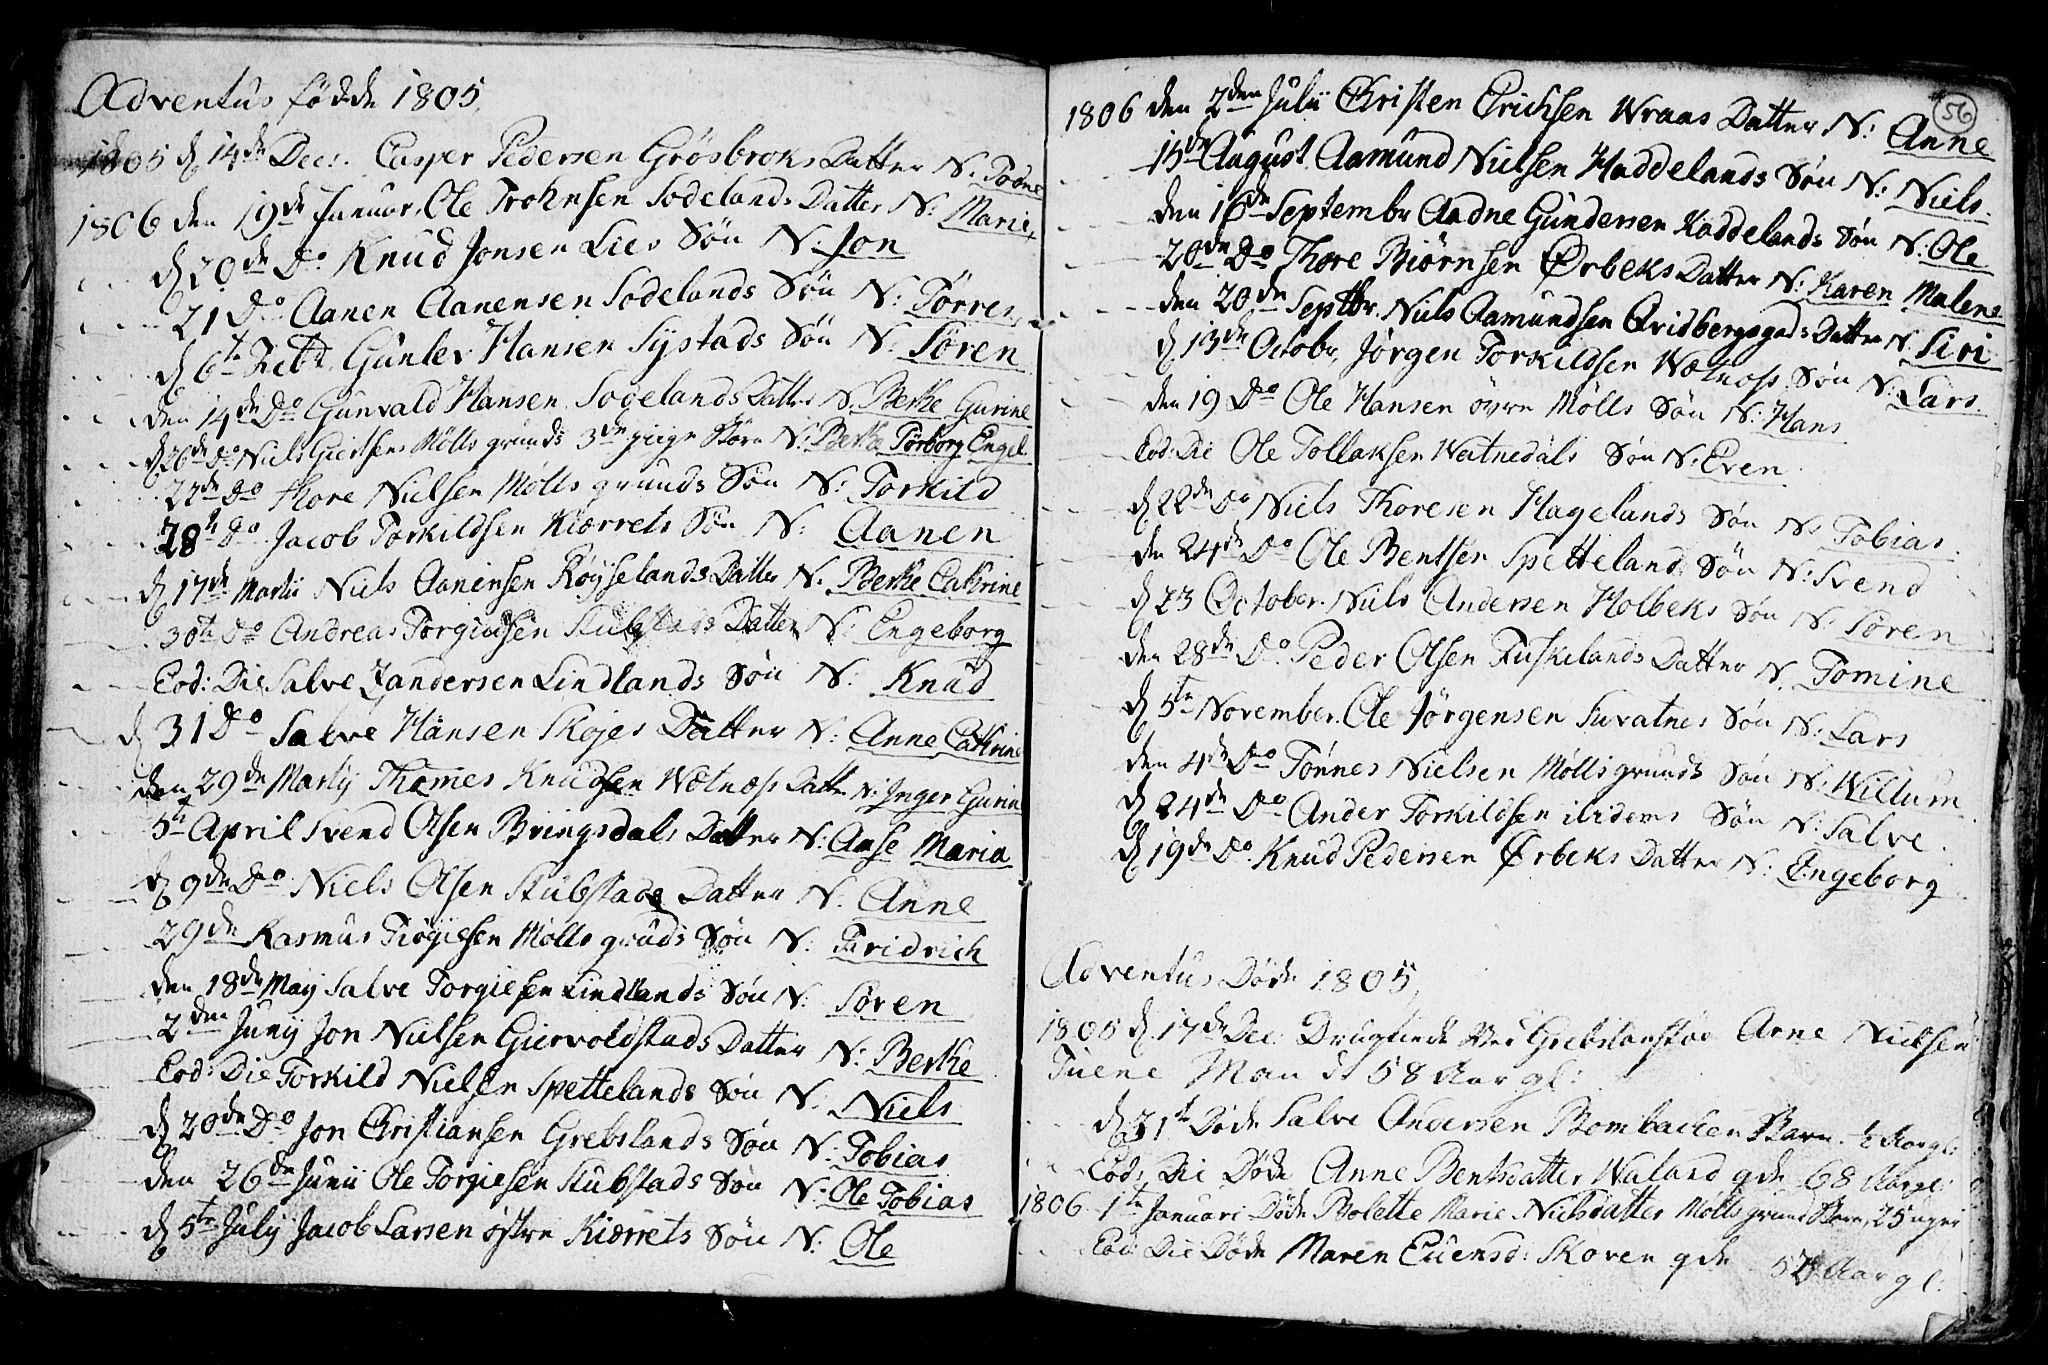 Adventus fødde 1805
1805 d 14de Decr. Casper Pedersen Grösbroks Datter N. Todne
1806 den 19de Januar, Ole Trohnsen Sodelands Datter N: Marie
d 20de Do Knud Jonsen Lies Søn N. Jon
21 Do Aanen Aanensen Sodelands Søn N: Torres
d 6te Febr Gunlev Hansen Systads Søn N. Søren
den 14de Do Gunvald Hansen Sodelands Datter N. Berthe Gurine
d 26de Do Niels Mølls grunds 3de Børn N: Berthe Torborg Engel
27de Do Thore Nielsen Mølls grunds Søn N: Torkild
28de Do Jacob Torkildsen Kiærrets Søn N: Aanen
d 17de Martii Niels Aanensen Røyselands Datter N. Berthe Cathrine
30te Do Andreas Torgiusen Stubstads Datter N: Engeborg
Eod: Die Salve Zandersen Lindlands Søn N: Knud
d 31 Do Salve Hansen Skojes Datter N: Anne Cathrine
den 29de Martij Thomes Knudsen Wætnæss Datter N: Inger Gurine
5te April Svend Olsen Bringsdals Datter N: Aase Maria
d 9de Do Niels Olsen Stubstads Datter N. Anne
29de Rasmus Mølls gruds Søn N: Fridrich
den 18de Maij Salve Torgiesen Lindlands Søn N: Søren
2den Junij Jon Nielsen Giervoldstads Datter N: Berthe
Eod: Die Torkild Nielsen Spettelands Søn N. Niels
d 20de Do Jon Christiansen Grebslands Søn N: Tobias
den 26de Junii Ole Torgiesen Stubstads Søn N: Ole Tobias
d 5te Julij Jacob Larsen østre Kiærrets Søn N. Ole
56
1806 den 2den Julii Christen Erichsen Wraas Datter N: Anne
15de August Aamund Nielsen Haddelands Søn N: Niels
den 16de Septembr Aadne Gundersen Haddelands Søn N: Ole
20de Do Thore Biørnsen Ørbeks Datter N: Karen Malene
den 20de Septbr. Niels Aamundsen Datter N. Siri
d 13de Octobr, Jørgen Torkildsen Wætnæss Søn N: Lars
den 19 Do Ole Hansen øvre Mølls Søn N: Hans
Eod: Die Ole Tollaksen Watnedals Søn N: Even
d 22de Do Niels Thoresen Hagelands Søn N: Tobias
den 24de Do Ole Bentsen Spetteland Søn N: Svend
d 23 October. Niels Andersen Holbeks Søn N: Søren
den 28de Do Peder Olsen Fuskelands Datter N. Tomine
d 5te November. Ole Jørgensen Suvatnes Søn N: Lars
den 4de Do Tønnes Nielsen Mølls grunds Søn N: Willum
d 24de Do Ander Torkildsen ibidems Søn N: Salve
d 19de Do Knud Pedersen Ørbeks Datter N: Engeborg
Adventus Døde 1805
1805 d. 17de Dec: Ved Arne Nielsen
Tuene Mand 58 Aar gl:
d 31te Døde Salve Andersen Barn ½ Aar gl:
Eod: Die Døde Anne Bentsdatter gde 68 Aar gl:
1806 1te Januari Døde Bolette Marie Nielsdatter Mølls grund Barn, 25 uger
Eod: Die Døde Maren Euensd: Skoven gde Aar gl: